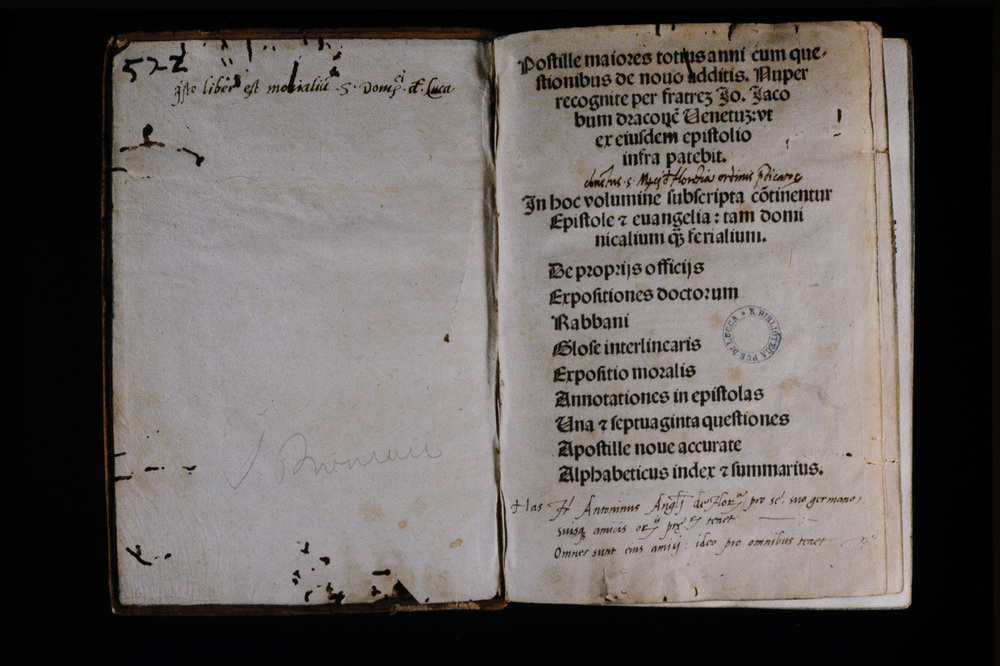 522
q̃sto liber est monialiũ S. Domci. d. Luca
Postille maiores totius anni cum que-
stionibus de nouo additis. Nuper
recognite per fratrez Jo. Jaco
bum draconẽ Uenetuz: vt
ex eiusdem epistolio
infra patebit.
ordinis
In hoc volumine subscripta cõtinentur
Epistole ⁊ euangelia: tam domi
nicalium qz̃ ferialium.
De proprijs officijs
Expositiones doctorum
Rabbani
Glose interlinearis
Expositio moralis
Annotationes in epistolas
Una ⁊ septuaginta questiones
Apostille noue accurate
Alphabeticus index ⁊ summarius.
R. BIBLIOTECA PUB. DI LUCCA
Antoninus pro se, suo germano,
amicis tenet
Omnes sunt eius amicj ideo pro omnibus tenet